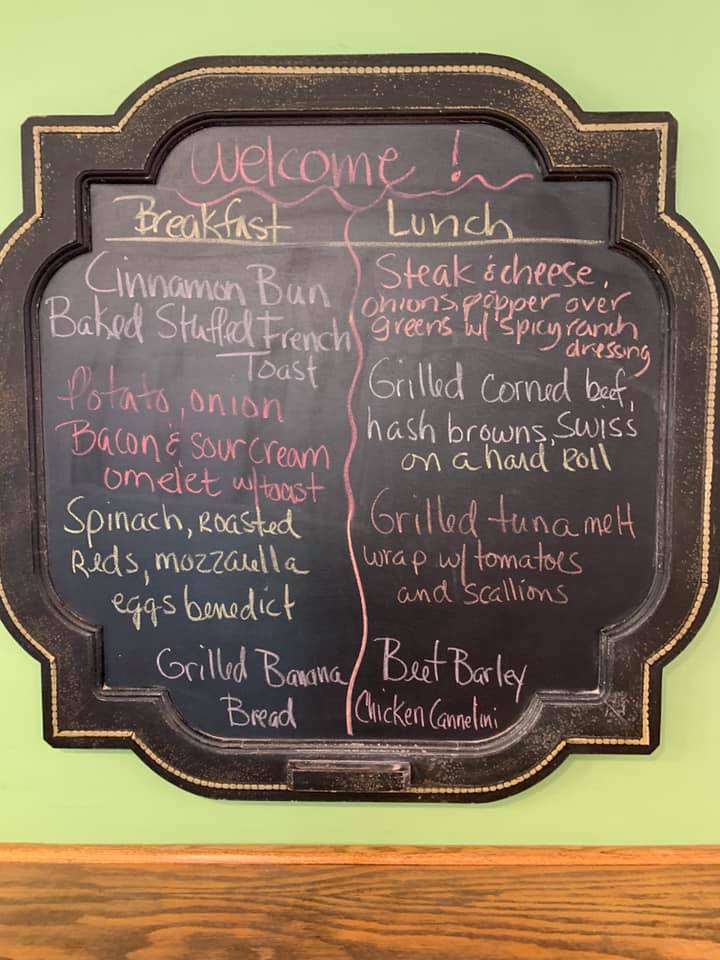 Welcome!
Breakfast
Cinnamon Bun
Baked Stuffed French
Toast
Potato, onion
Bacon & sour cream
omelet w/toast
Spinach, Roasted
Reds, mozzarella
eggs benedict
Grilled Banana
Bread
Lunch
Steak & cheese,
onions, pepper over
greens w/ spicy ranch
dressing
Grilled Corned beef,
hash browns, Swiss
on a hard Roll
Grilled tuna melt
wrap w/ tomatoes
and scallions
Beef Barley
Chicken Cannelini